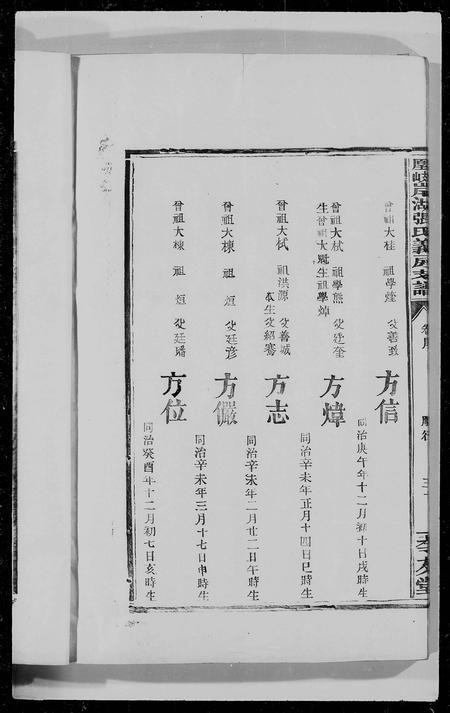 湖張氏義房支譜
孝友堂
曾祖大桂 祖學煃 父善致
方信
同治庚午年十二月初十日戌時生
曾祖大栻 祖學熊 父廷奎
生曾祖大 生祖學焯
方煒
同治辛未年正月十四日巳時生
曾祖大栻 祖洪源 父善城
本生父紹騫
方志
同治辛未年二月廿二日午時生
曾祖大棟 祖烜 父廷彦
方儼
同治辛未年三月十七日申時生
曾祖大棟 祖烜 父廷璠
方位
同治癸酉年十二月初七日亥時生